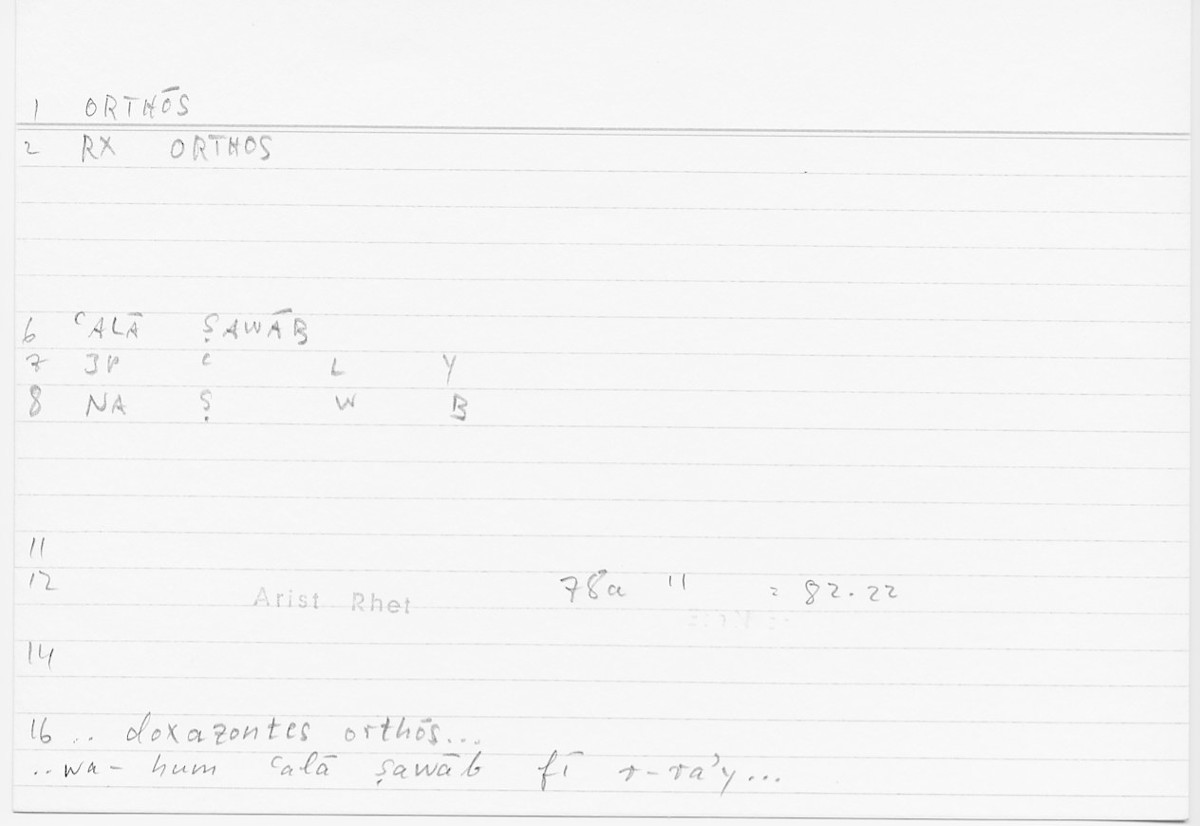 1 ORTHŌS
2 RX ORTHOS
6 ʿALĀ ṢAWĀB
7 3P ʿ L Y
8 NA Ṣ W B
11
12 Arist Rhet 78a 11 = 82.22
14
16 .. doxazontes orthōs...
.. wa-hum ʿalā ṣawāb fī r-ra’y...